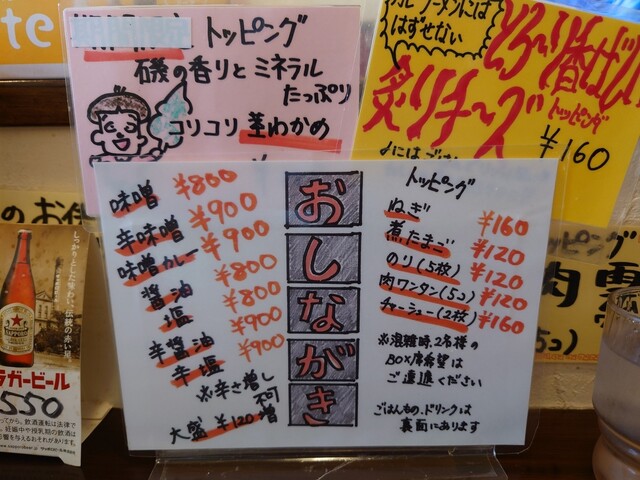 トッピング
磯の香りとミネラル
たっぷり
コリコリ 茎わかめ
はずせない
炙りチーズ
トッピング
¥160
おしながき
味噌 ¥800
辛味噌 ¥900
味噌カレー ¥900
醤油 ¥800
塩 ¥800
辛醤油 ¥900
辛塩 ¥900
※辛さ増し
不可
大盛 ¥120増
トッピング
ねぎ ¥160
煮たまご ¥120
のり(5枚) ¥120
肉ワンタン(5コ) ¥120
チャーシュー(2枚) ¥160
※混雑時、2名様の
BOX席希望は
ご遠慮ください
ごはんもの、ドリンクは
裏面にあります
しっかりとした味わい。伝統の赤い星。
SAPPORO
ラガービール
550